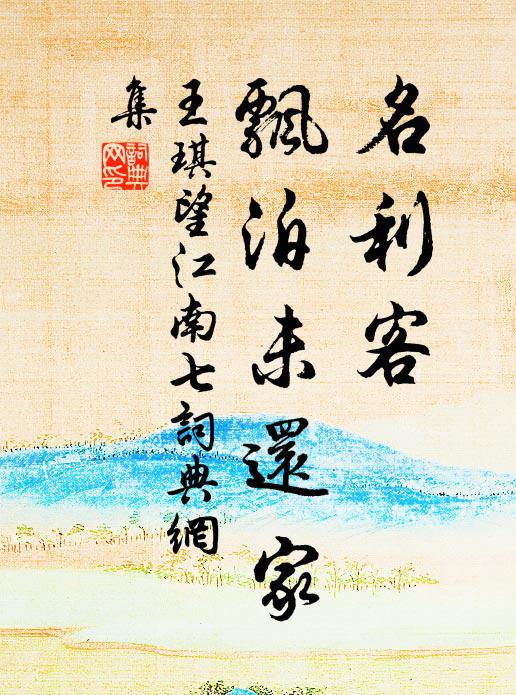 名利客
飄泊未還家
王琪望江南七詞典網
集
詞典網印